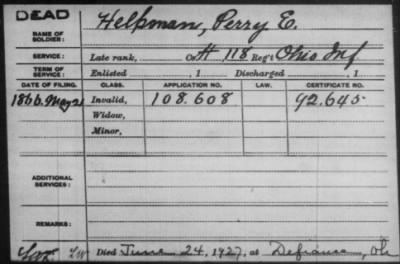 DEAD
NAME OF SOLDIER: Helpman, Perry E.
SERVICE: Late rank, Co. H 118 Reg't Ohio Inf
TERM OF SERVICE: Enlisted , 1 Discharged , 1
DATE OF FILING. CLASS. APPLICATION NO. LAW. CERTIFICATE NO.
1866. May 21 Invalid, 108.608 92.645
Widow,
Minor,
ADDITIONAL SERVICES:
REMARKS:
Died June 24, 1927, at Defiance, Oh